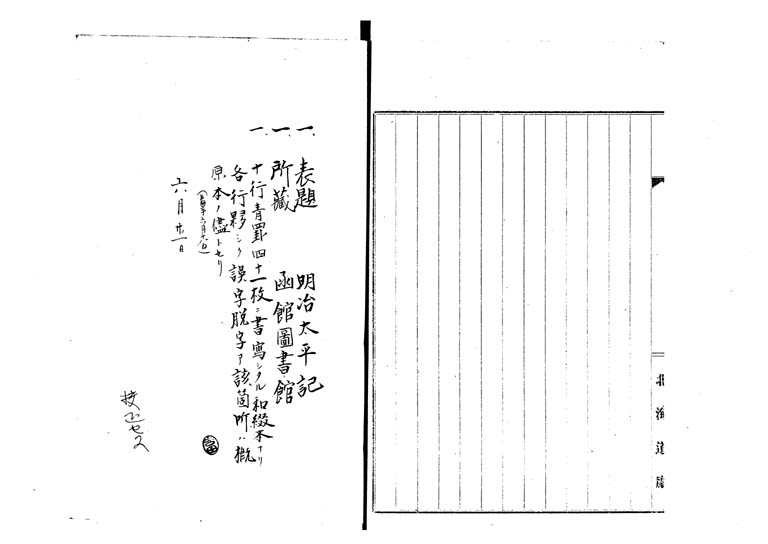 北海道廳
一、表題 明治太平記
一、所藏 函館圖書館
一、十行青罫四十一枚ニ書寫シタル和綴本ナリ
各行夥シク誤字脱字ア該箇所ハ概
原本ノ儘トセリ
六月廿一日
校正セス